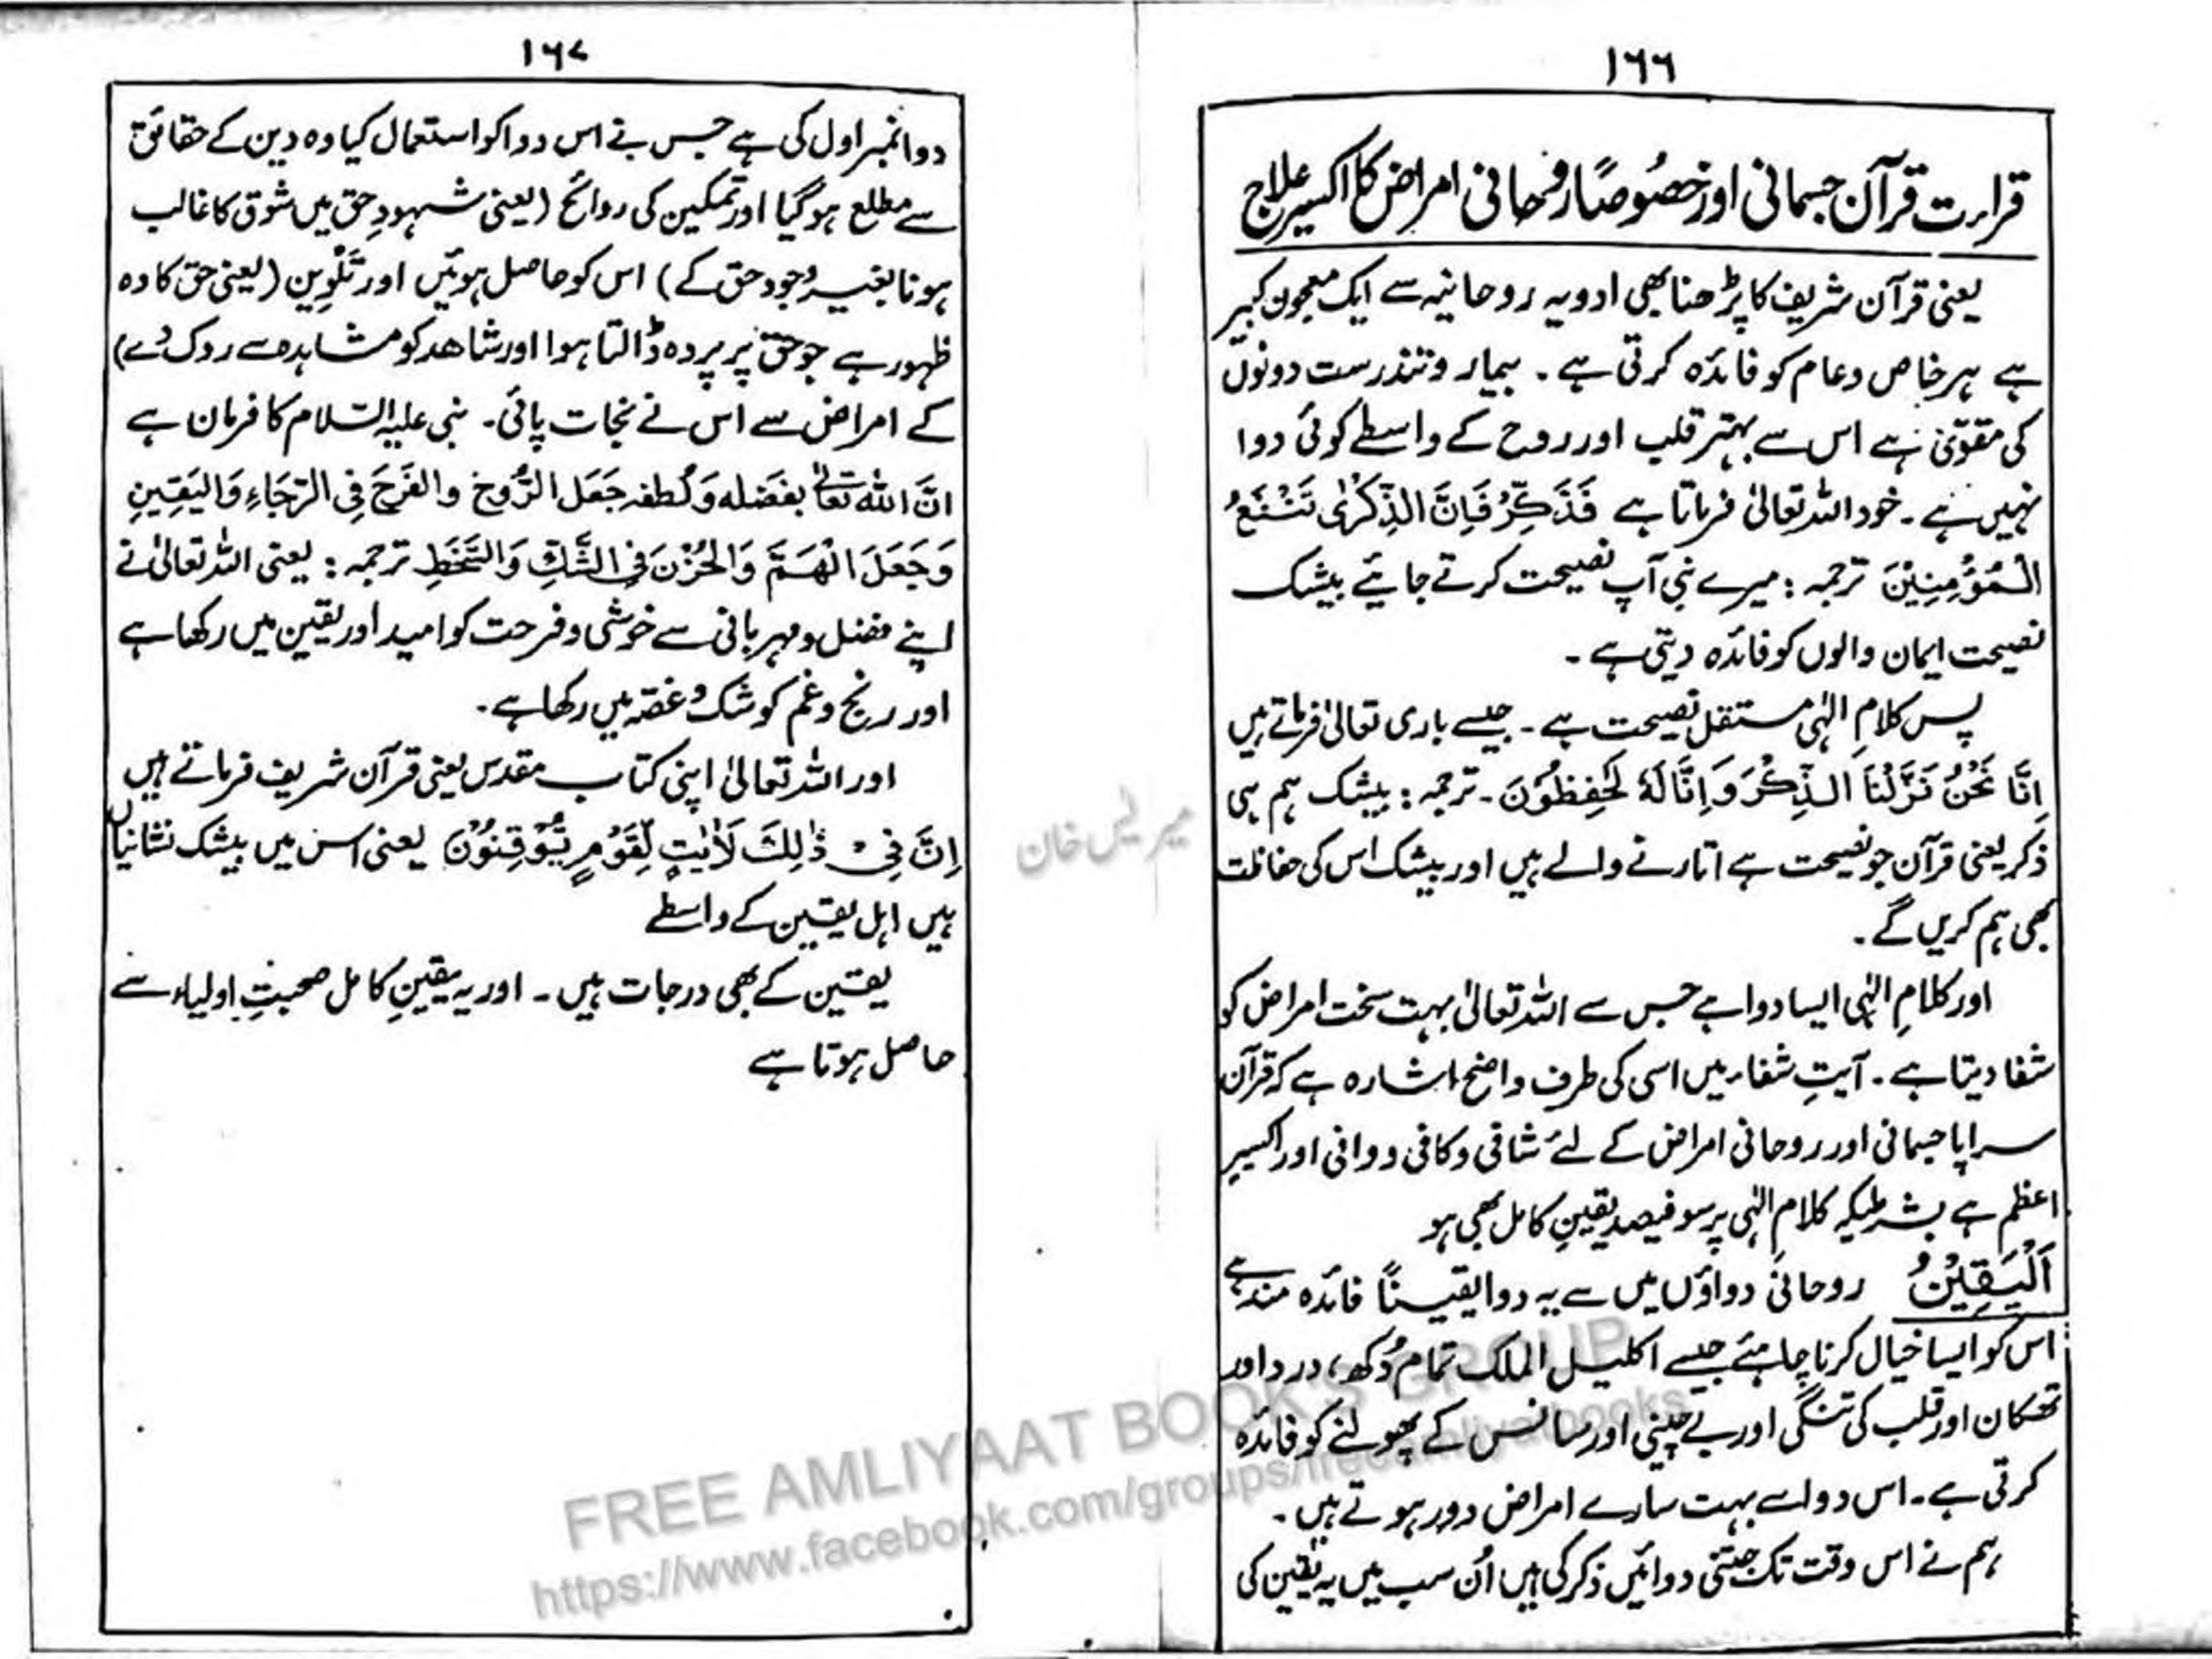 ۱۶۶
قراءت قرآن جسمانی اور خصُوصًا روحانی امراض کا اکسیر علاج
یعنی قرآن شریف کا پڑھنا بھی ادویہ روحانیہ سے ایک معجون کبیر
ہے ہر خاص و عام کو فائدہ کرتی ہے ۔ بیمار و تندرست دونوں
کی مقوّی ہے اس سے بہتر قلب اور روح کے واسطے کوئی دوا
نہیں ہے ۔ خود اللہ تعالیٰ فرماتا ہے فَذَكِّرْ فَاِنَّ الذِّكْرٰى تَنْفَعُ
الْمُؤْمِنِيْنَ ترجمہ : میرے نبی آپ نصیحت کرتے جائیے بیشک
نصیحت ایمان والوں کو فائدہ دیتی ہے ۔
پس کلامِ الٰہی مستقل نصیحت ہے ۔ جیسے باری تعالیٰ فرماتے ہیں
اِنَّا نَحْنُ نَزَّلْنَا الذِّكْرَ وَاِنَّا لَهٗ لَحٰفِظُوْنَ ۔ ترجمہ : بیشک ہم ہی
ذکر یعنی قرآن جو نصیحت ہے اتارنے والے ہیں اور بیشک اس کی حفاظت
بھی ہم کریں گے ۔
اور کلامِ الٰہی ایسا دوا ہے جس سے اللہ تعالیٰ بہت سخت امراض کو
شفا دیتا ہے ۔ آیتِ شفاء میں اسی کی طرف واضح اشارہ ہے کہ قرآن
سراپا جسمانی اور روحانی امراض کے لئے شافی و کافی و وافی اور اکسیر
اعظم ہے بشرطیکہ کلامِ الٰہی پر سو فیصد یقینِ کامل بھی ہو
اَلْيَقِيْنُ روحانی دواؤں میں سے یہ دوا یقینًا فائدہ مند ہے
اس کو ایسا خیال کرنا چاہئے جیسے اکلیل الملک تمام دُکھ، درد اور
تھکان اور قلب کی تنگی اور بے چینی اور سانس کے پھولنے کو فائدہ
کرتی ہے ۔ اس دوا سے بہت سارے امراض دور ہوتے ہیں ۔
ہم نے اس وقت تک جتنی دوائیں ذکر کی ہیں اُن سب میں یہ یقین کی
۱۶۷
دوا نمبر اول کی ہے جس نے اس دوا کو استعمال کیا وہ دین کے حقائق
سے مطلع ہو گیا اور تمکین کی روائح (یعنی شہودِ حق میں شوق کا غالب
ہونا بغیر وُجود حق کے) اس کو حاصل ہوئیں اور تَلْوِین (یعنی حق کا وہ
ظہور ہے جو حق پر پردہ ڈالتا ہوا اور شاھد کو مشاہدہ سے روک دے)
کے امراض سے اس نے نجات پائی ۔ نبی علیہ السّلام کا فرمان ہے
انَّ اللہ تعالیٰ بفَضله وَلُطفه جَعَل الرُّوح والفَرَحَ فِى الرَّجَاءِ وَاليَقِينِ
وَجَعَلَ الْهَمَّ وَالحُزْنَ فِى الشَّكِّ وَالسَّخَطِ ترجمہ : یعنی اللہ تعالیٰ نے
اپنے فضل و مہربانی سے خوشی و فرحت کو امید اور یقین میں رکھا ہے
اور رنج و غم کو شک و غصّہ میں رکھا ہے ۔
اور اللہ تعالیٰ اپنی کتاب مقدس یعنی قرآن شریف فرماتے ہیں
اِنَّ فِىْ ذٰلِكَ لَاٰيٰتٍ لِّقَوْمٍ يُّوْقِنُوْنَ یعنی اس میں بیشک نشانیاں
ہیں اہل یقین کے واسطے
یقین کے بھی درجات ہیں ۔ اور یہ یقینِ کامل صحبتِ اولیاء سے
حاصل ہوتا ہے
FREE AMLIYAAT BOOK'S GROUP
https://www.facebook.com/groups/freeamliyatbooks